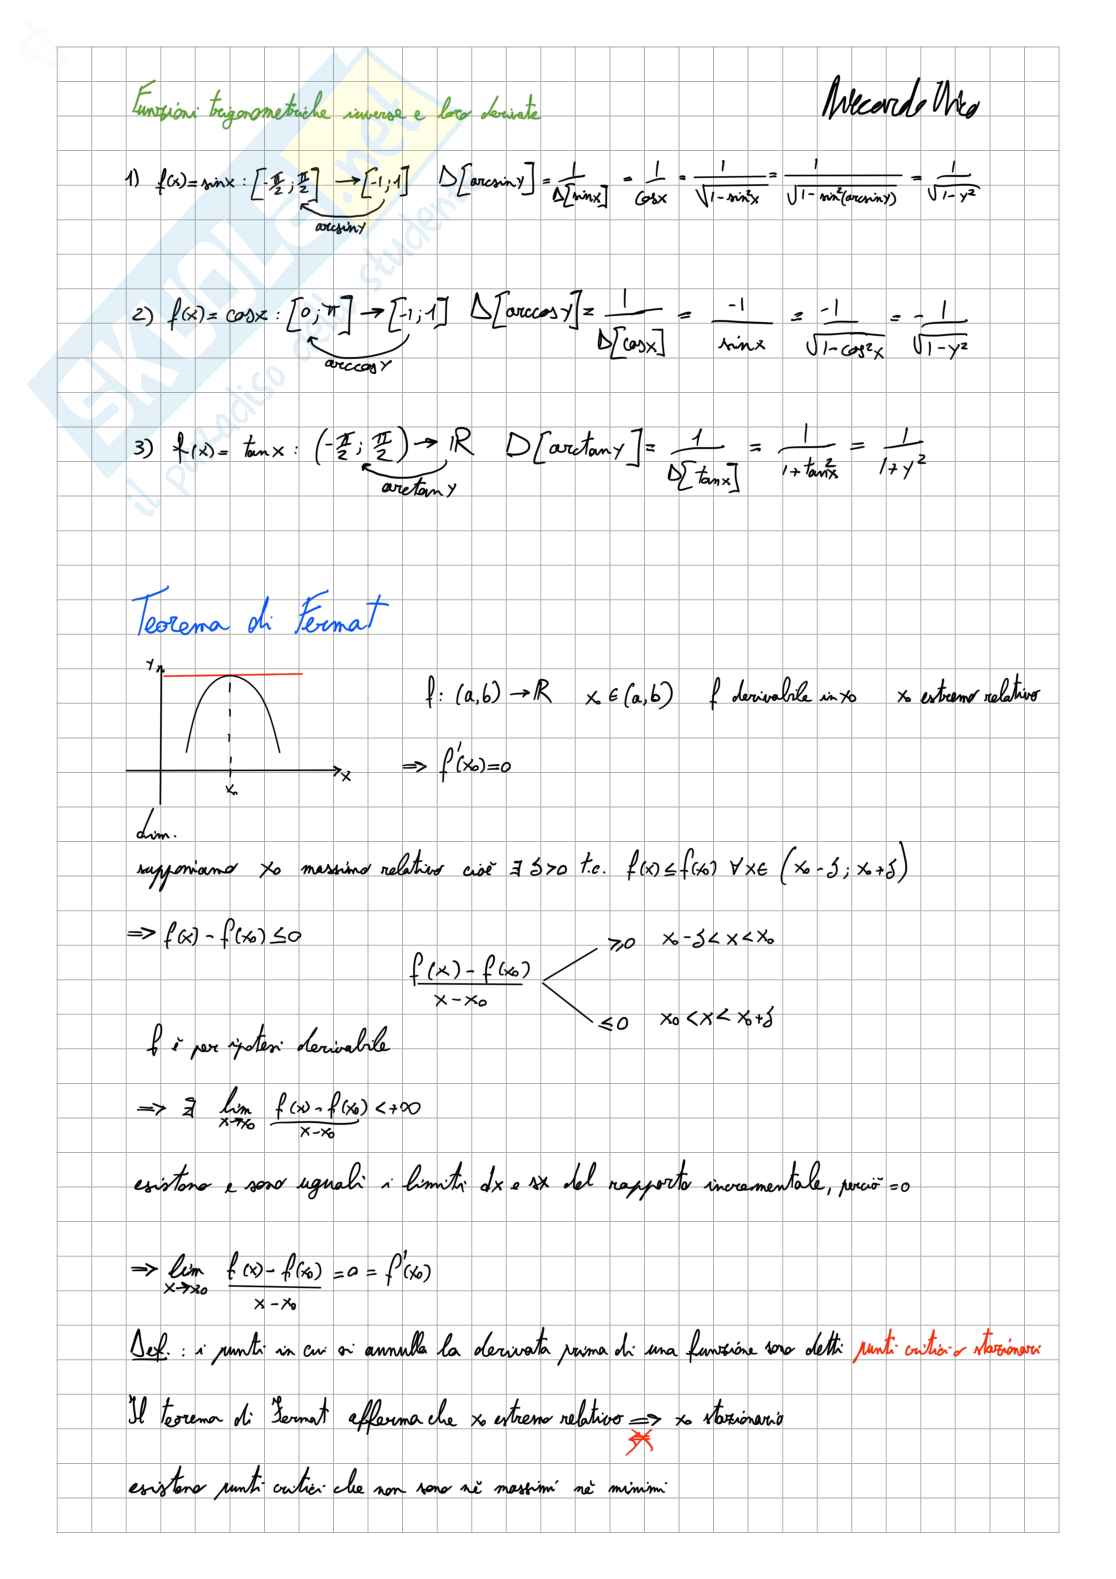 Funzioni trigonometriche inverse e loro derivate
1) f(x)=sinx : [-π/2 ; π/2] → [-1;1] D[arcsiny] = 1/D[sinx] = 1/cosx = 1/√(1-sin²x) = 1/√(1-sin²(arcsiny)) = 1/√(1-y²)
arcsiny
2) f(x)= cosx : [0; π] → [-1;1] D[arccosy] = 1/D[cosx] = -1/sinx = -1/√(1-cos²x) = - 1/√(1-y²)
arccosy
3) f(x)= tanx : (-π/2 ; π/2) → ℝ D[arctany] = 1/D[tanx] = 1/(1+tan²x) = 1/(1+y²)
arctany
Teorema di Fermat
y
f: (a,b) → ℝ x₀ ∈ (a,b) f derivabile in x₀ x₀ estremo relativo
⇒ f'(x₀)=0
x
x₀
dim.
supponiamo x₀ massimo relativo cioè ∃ δ>0 t.c. f(x) ≤ f(x₀) ∀x∈ (x₀-δ ; x₀+δ)
⇒ f(x) - f(x₀) ≤0
(f(x) - f(x₀))/(x-x₀) ≥0 x₀-δ < x < x₀
≤0 x₀ < x < x₀+δ
f è per ipotesi derivabile
⇒ ∃ lim x→x₀ (f(x) - f(x₀))/(x-x₀) < +∞
esistono e sono uguali i limiti dx e sx del rapporto incrementale, perciò =0
⇒ lim x→x₀ (f(x) - f(x₀))/(x-x₀) = 0 = f'(x₀)
Def. : i punti in cui si annulla la derivata prima di una funzione sono detti punti critici o stazionari
Il teorema di Fermat afferma che x₀ estremo relativo ⇒ x₀ stazionario
⇍
esistono punti critici che non sono nè massimi nè minimi
SKUOLA.net
il paradiso dello studente